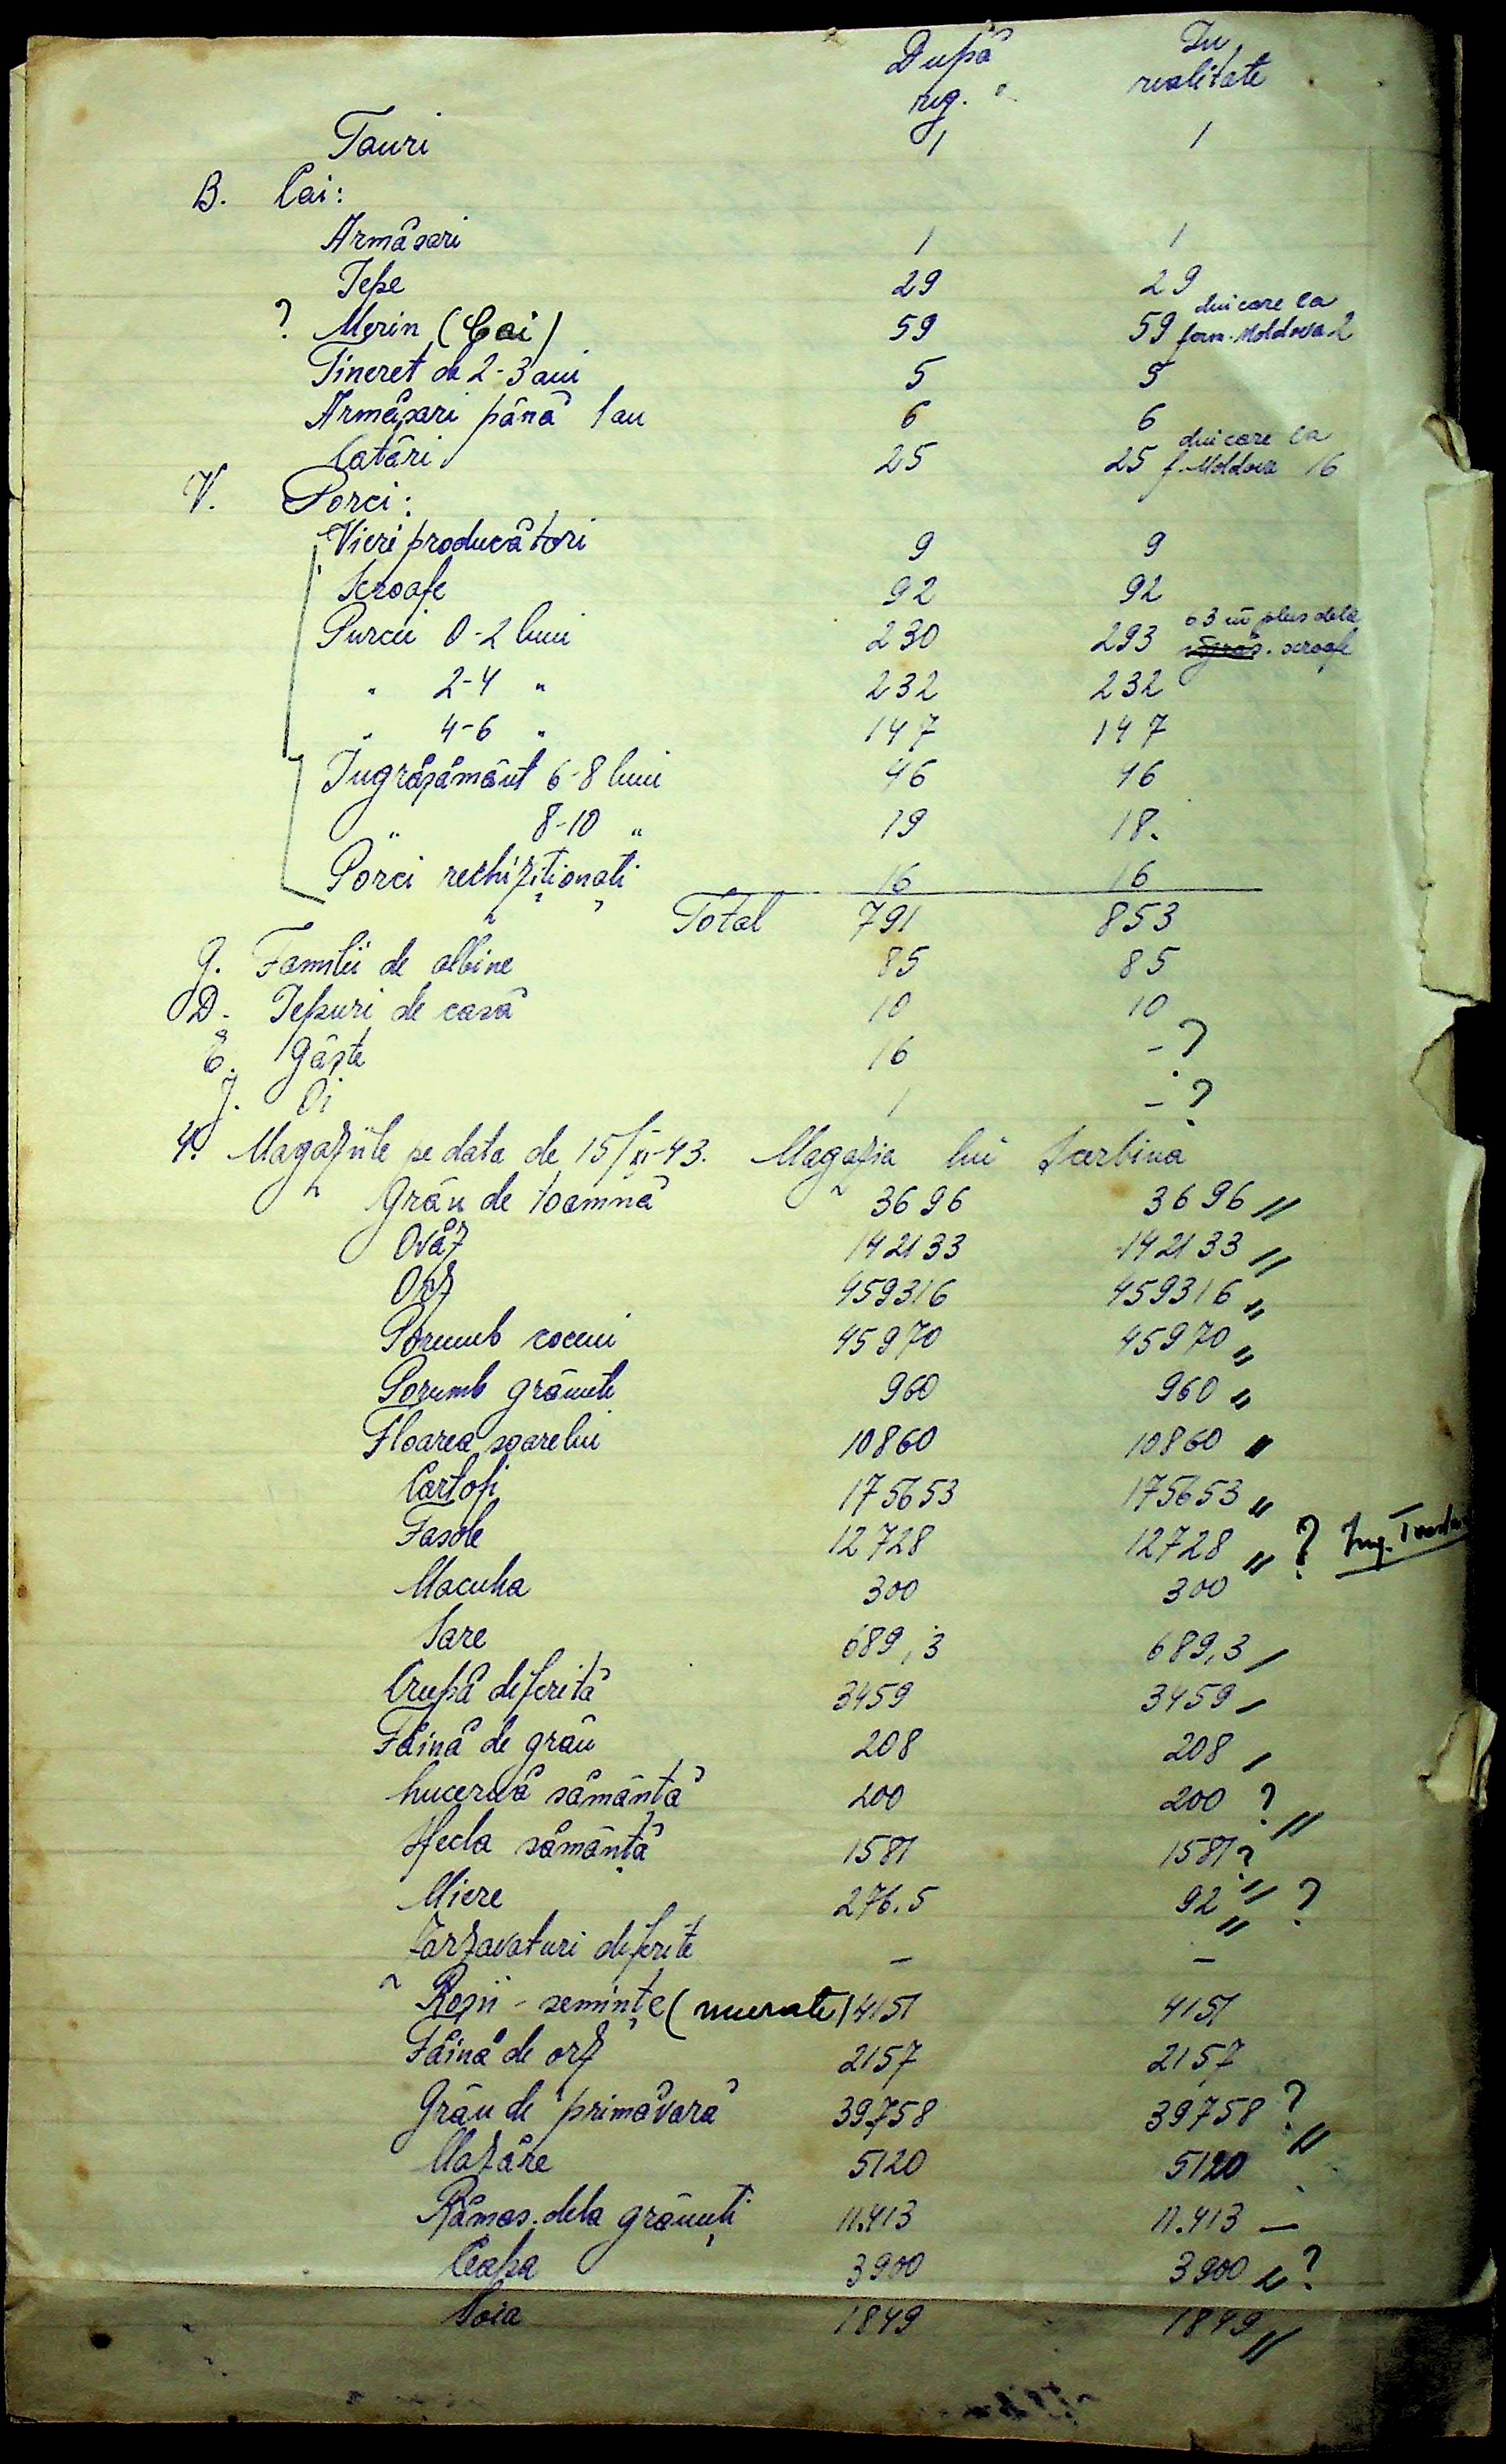 După In
reg. realitate
Tauri 1 1
B. Cai:
Armăsari 1 1
Iepe 29 29
? Merin (Cai) 59 59 din care la
ferm. Moldova 2
Tineret de 2-3 ani 5 5
Armăsari până 1 an 6 6
Catâri 25 25 din care la
f. Moldova 16
V. Porci:
Vieri producători 9 9
Scroafe 92 92
Purcei 0-2 luni 230 293 63 în plus dela
scroafe
" 2-4 " 232 232
" 4-6 " 147 147
Ingrășământ 6-8 luni 46 46
" 8-10 " 19 18.
Porci rechiziționați 16 16
Total 791 853
G. Familii de albine 85 85
D. Iepuri de casă 10 10
E. Gâște 16 - ?
J. Oi 1 - ?
4. Magaziile pe data de 15/XI-43. Magazia lui Scarbina
Grâu de toamnă 3696 3696 "
Ovăz 142133 142133 "
Orz 459316 459316 "
Porumb coceni 45970 45970 "
Porumb grăunte 960 960 "
Floarea soarelui 10860 10860 "
Cartofi 175653 175653 "
Fasole 12728 12728 " ? Ing.
Macuha 300 300
Sare 689,3 689,3
Crupă diferită 3459 3459
Făină de grâu 208 208
Lucernă sămânță 200 200 ? "
Sfecla sămânță 1581 1581 ? "
Miere 276.5 92 " ?
Zarzavaturi diferite - -
Roșii - semințe (murate) 4151 4151
Făină de orz 2157 2157
Grâu de primăvară 39758 39758 ? "
Mazăre 5120 5120
Rămas. dela grăunți 11.413 11.413 -
Ceapa 3900 3900 " ?
Soia 1849 1849 "